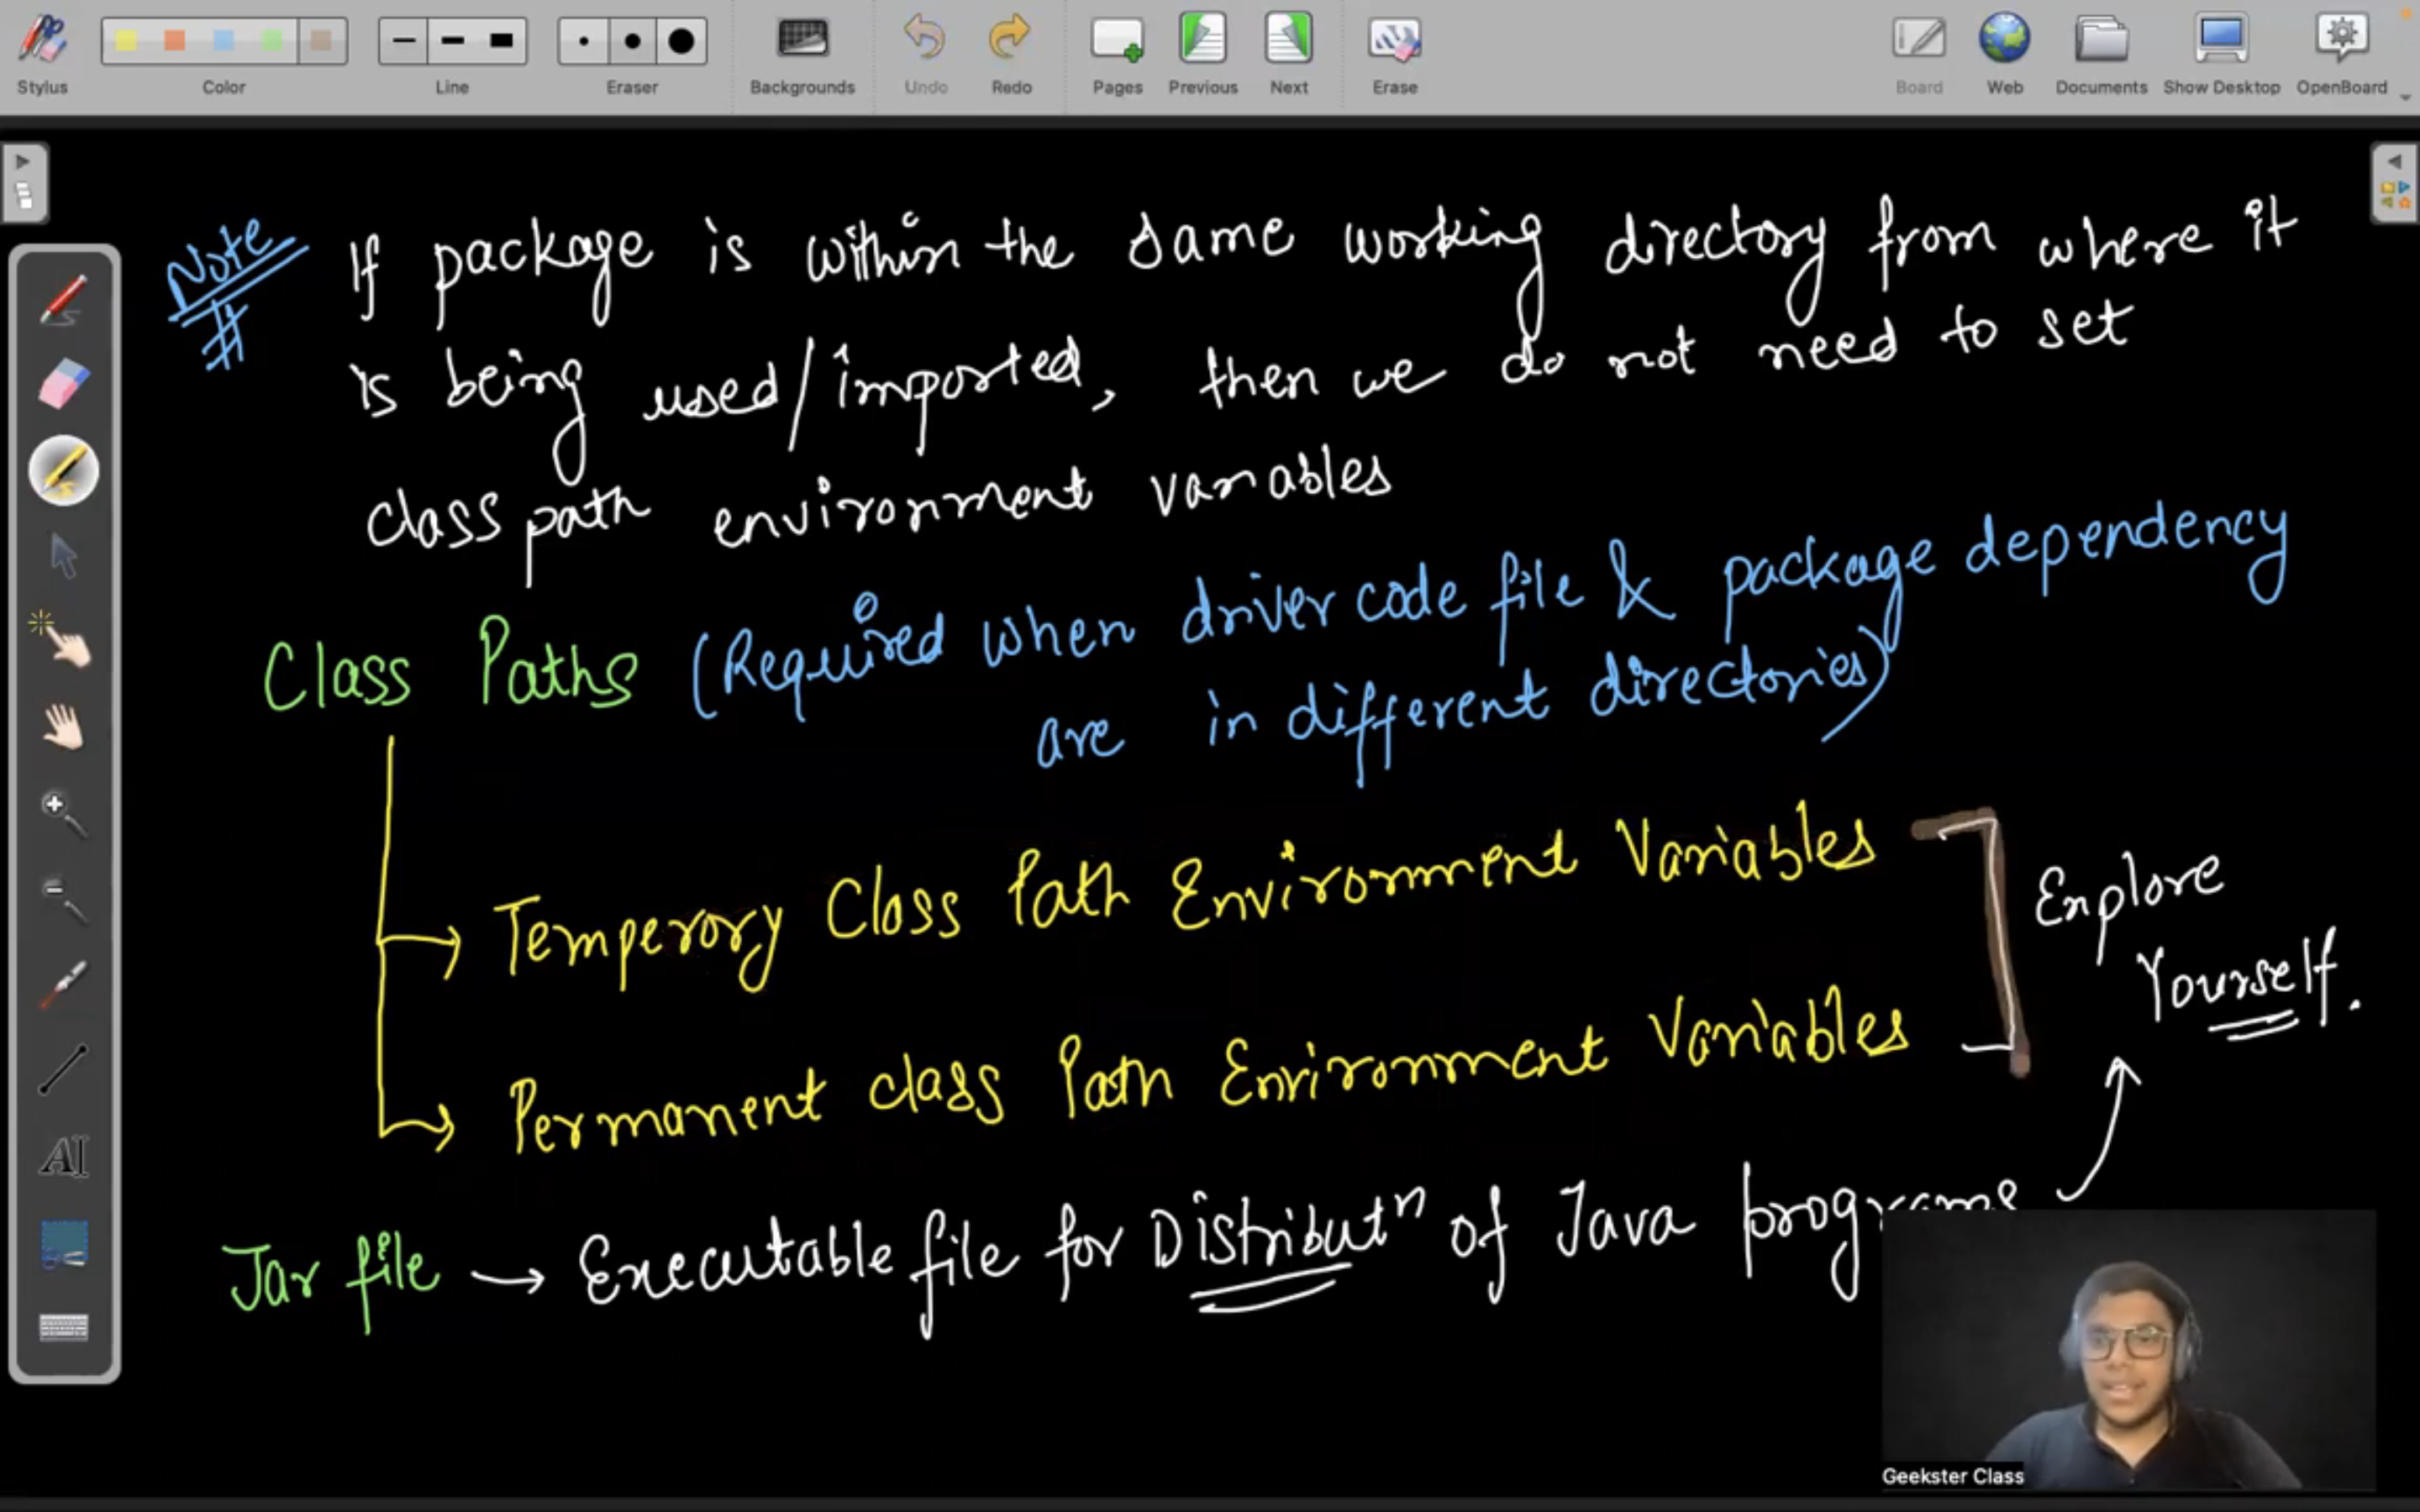 Stylus Color Line Eraser Backgrounds Undo Redo Pages Previous Next Erase Board Web Documents Show Desktop OpenBoard
Note
# If package is within the same working directory from where it
is being used/imported, then we do not need to set
class path environment variables
Class Paths (Required when driver code file & package dependency
are in different directories)
→ Temperory Class Path Environment Variables
→ Permanent class Path Environment Variables
Explore
Yourself.
Jar file → Executable file for Distributⁿ of Java programs
AI
Geekster Class